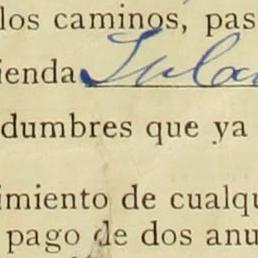 los caminos, pas
ienda
dumbres que ya
imiento de cualqu
pago de dos anu